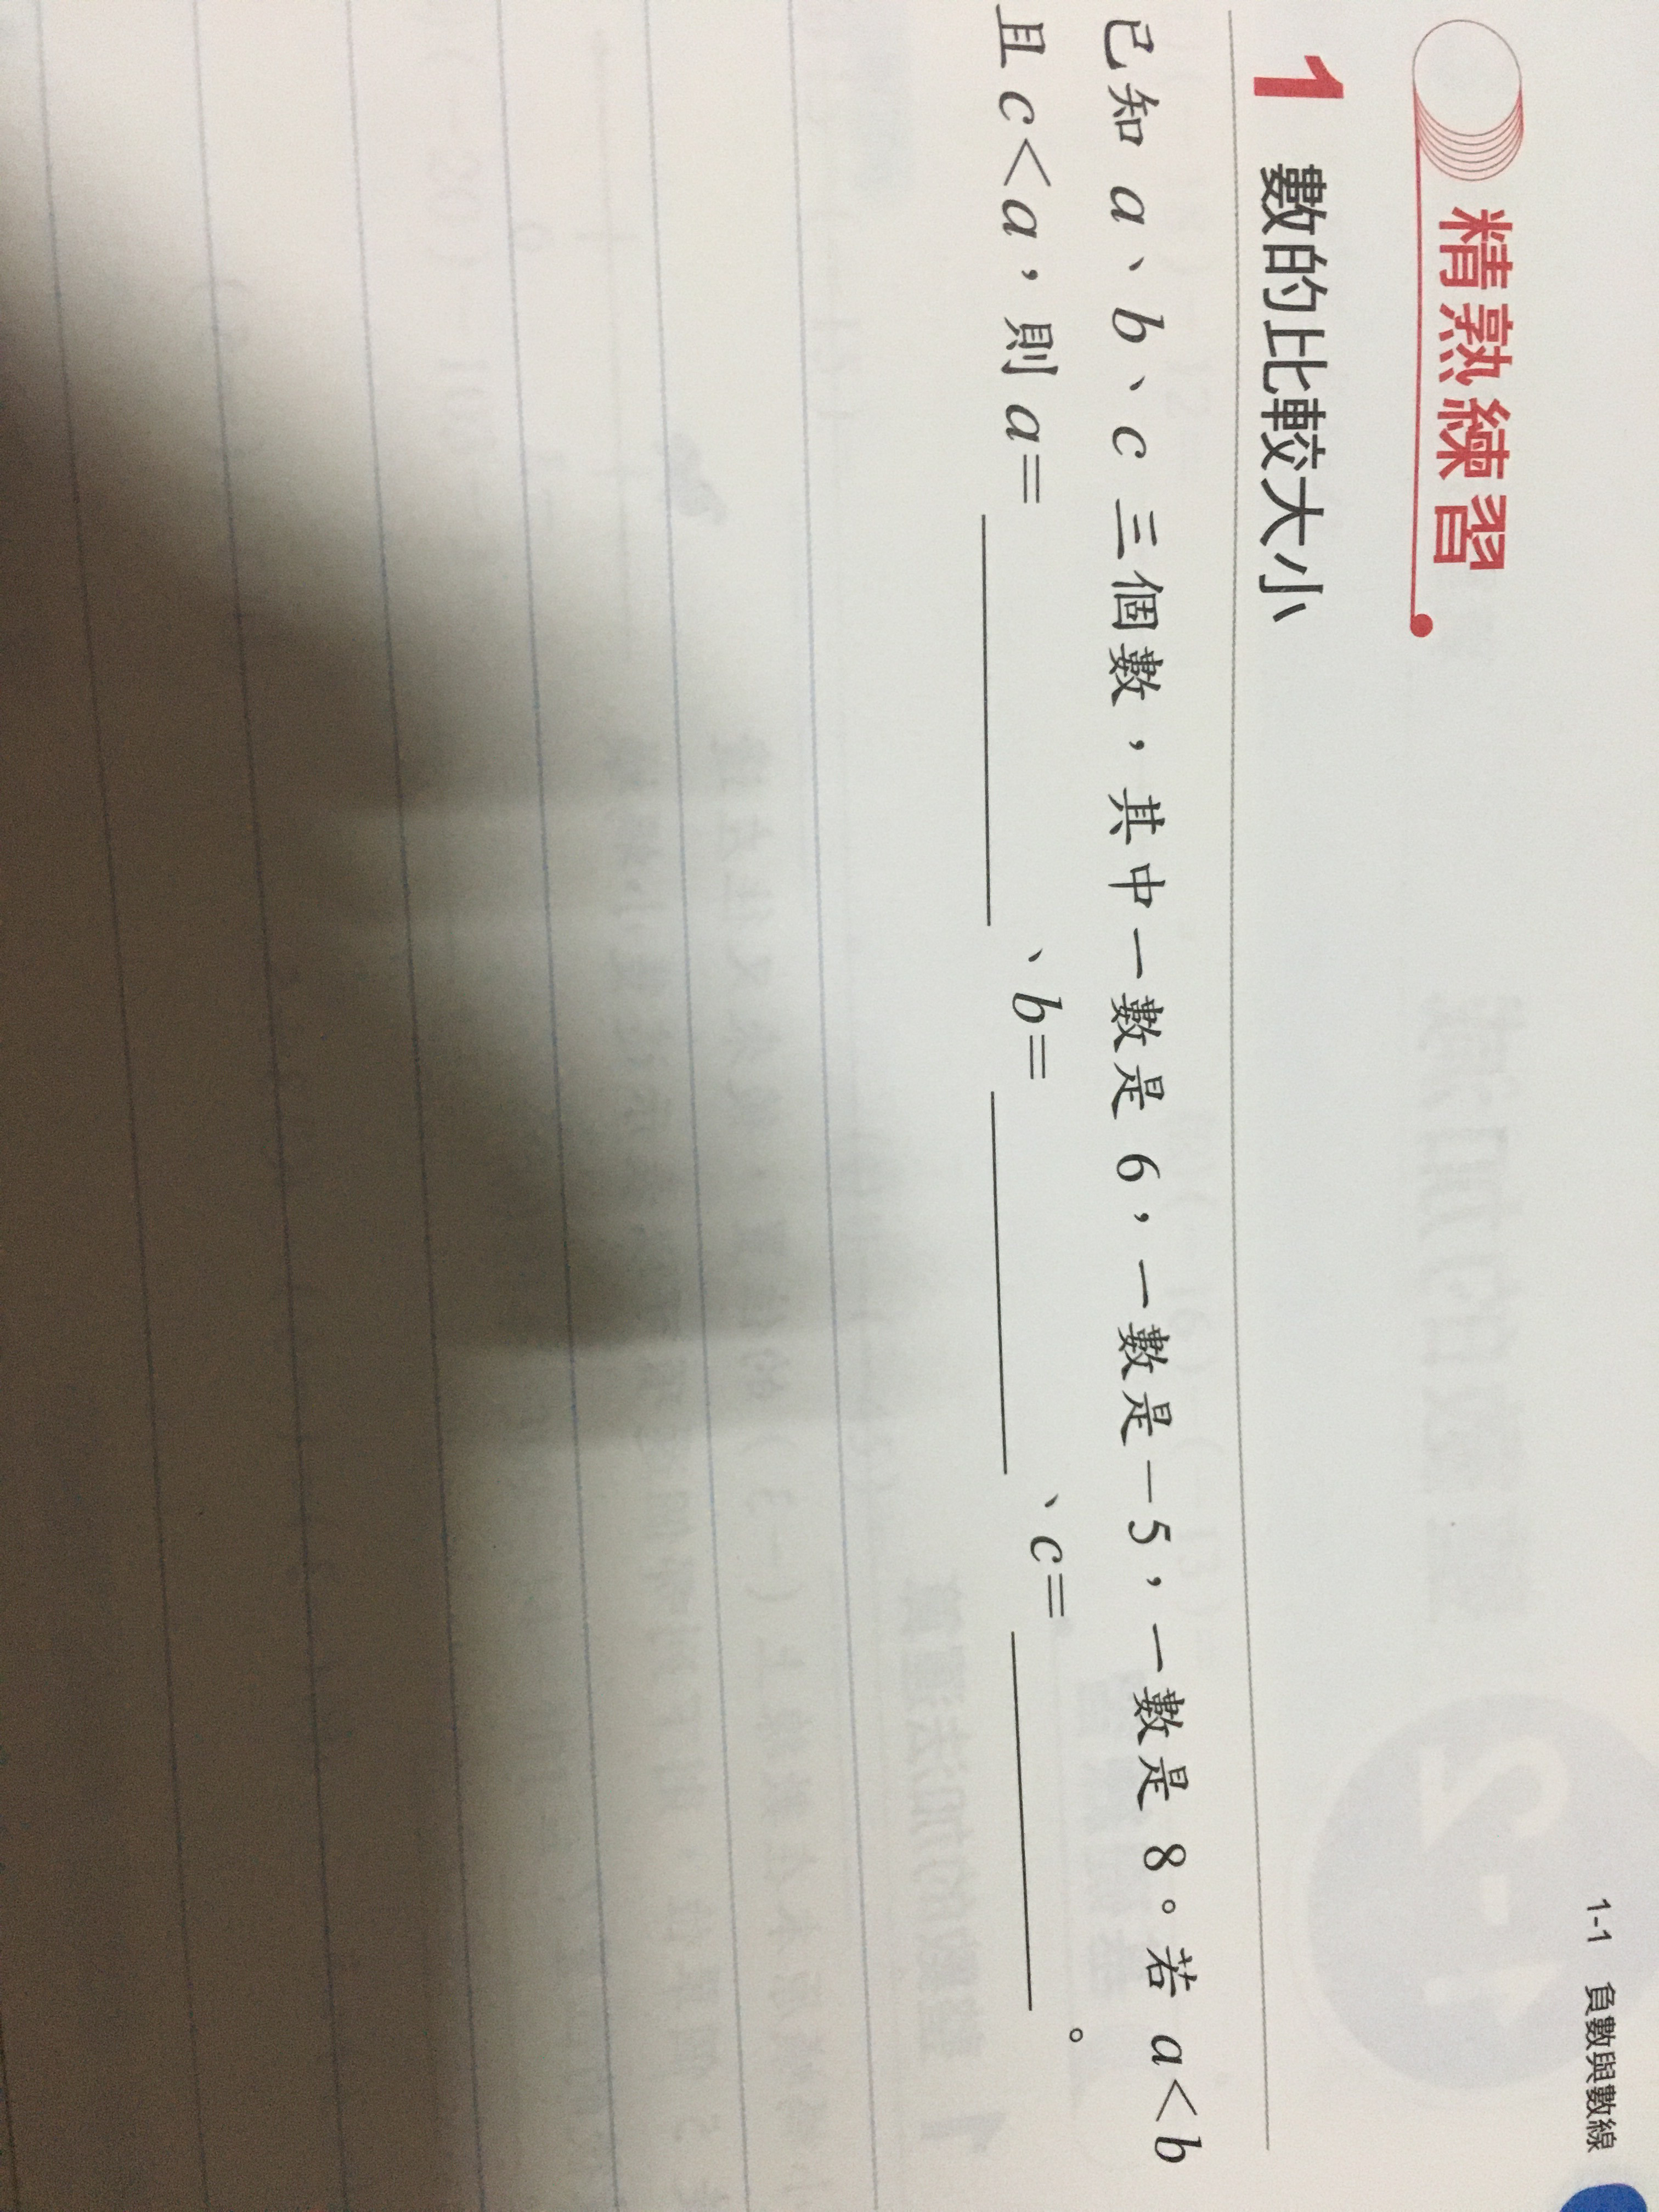 1-1 負數與數線
精熟練習
1 數的比較大小
已知 a、b、c 三個數，其中一數是 6，一數是－5，一數是 8。若 a<b
且 c<a，則 a=＿＿＿＿、b=＿＿＿＿、c=＿＿＿＿。